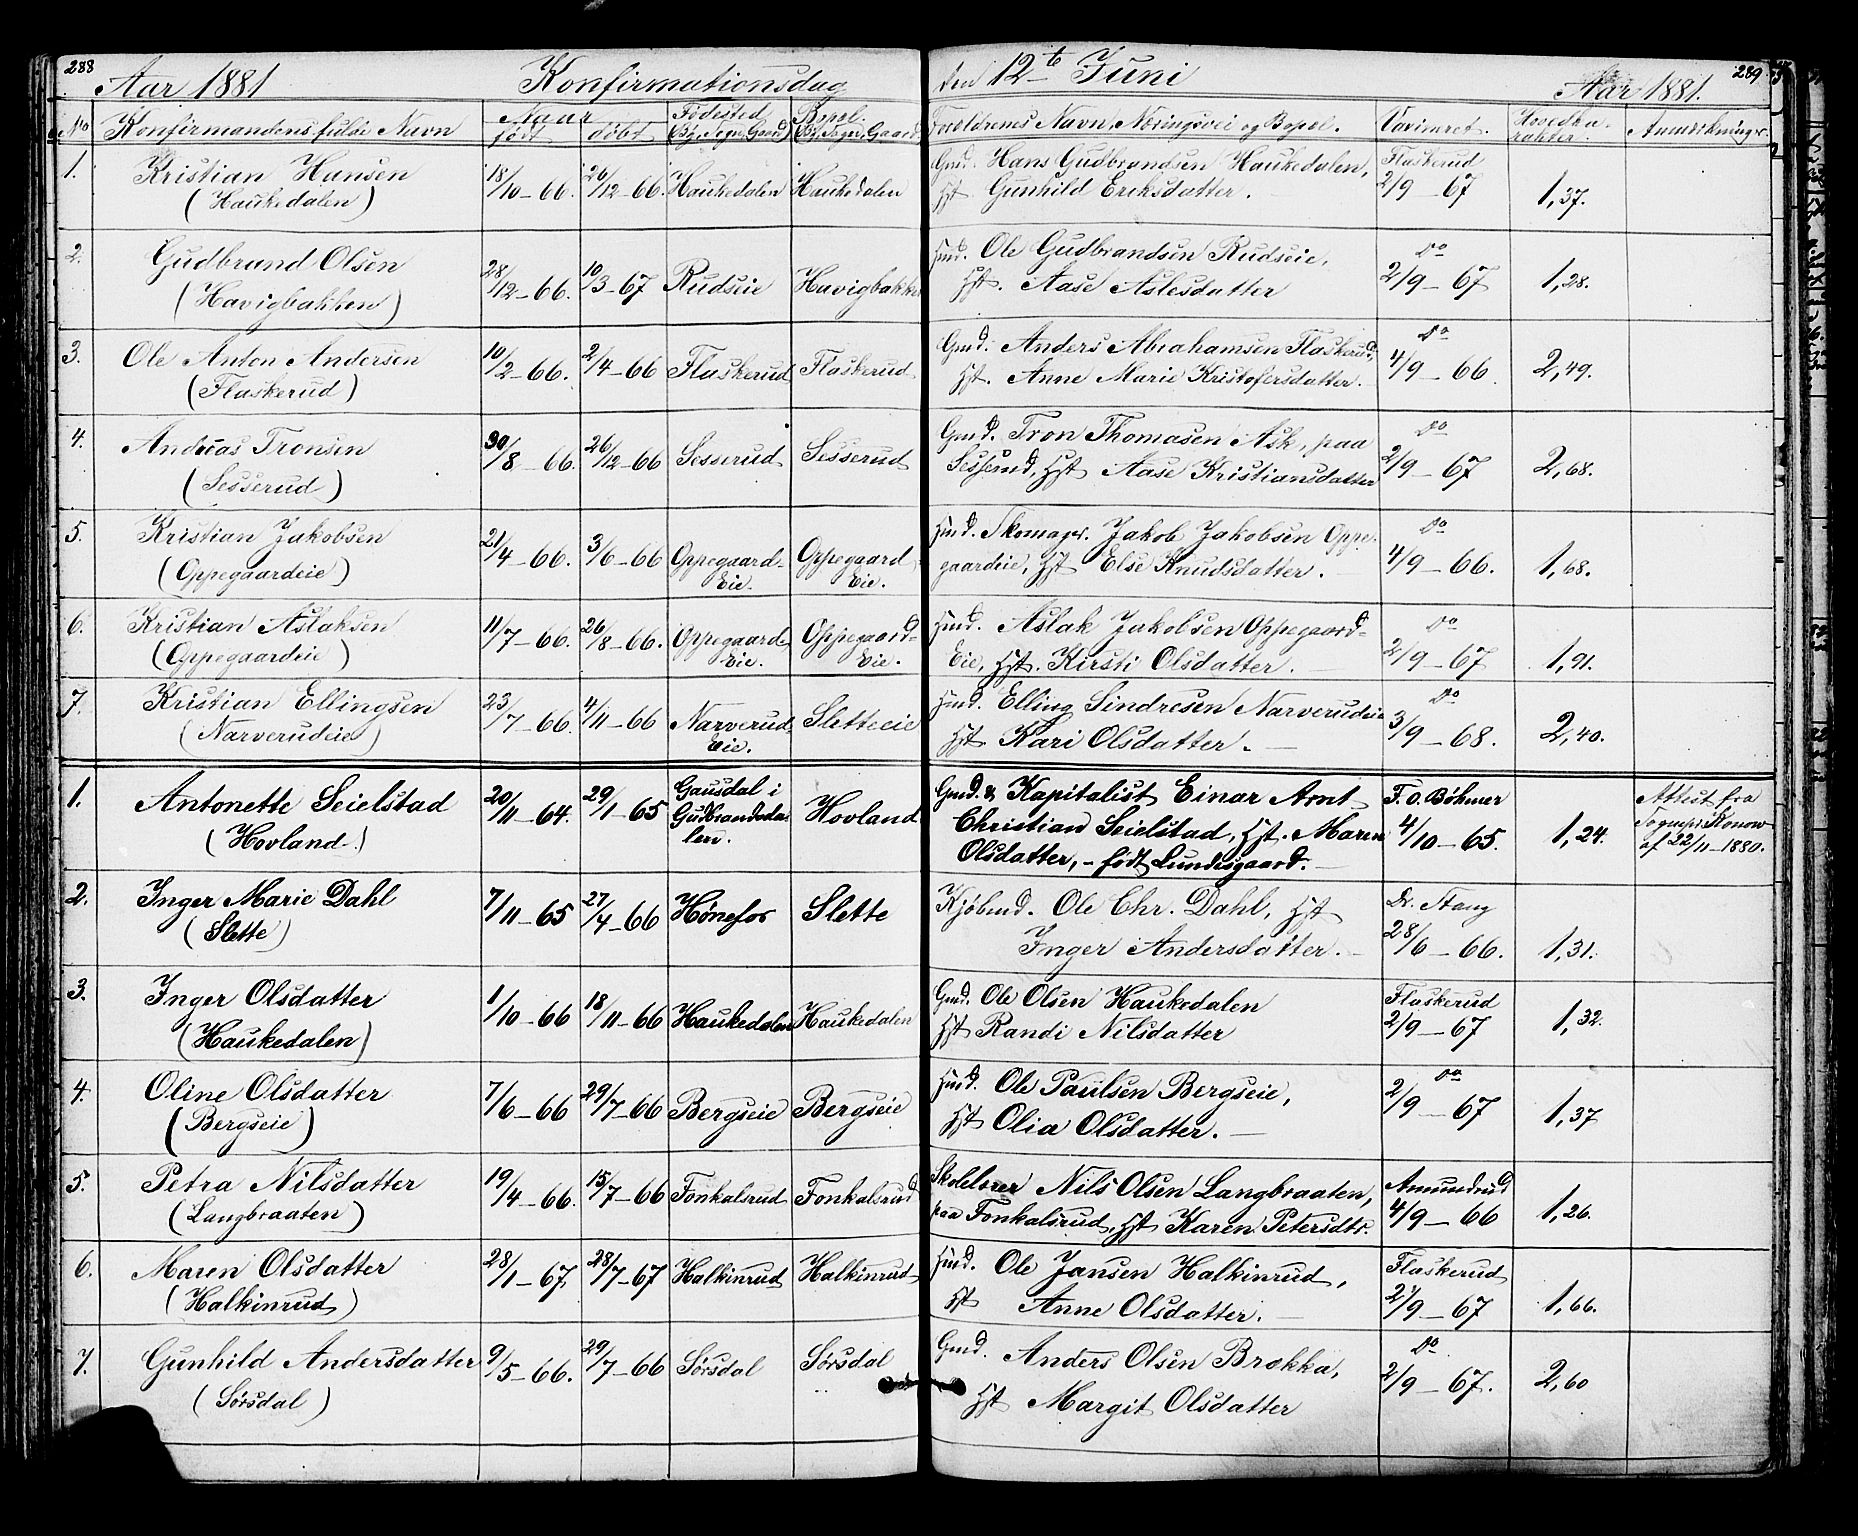 288
Aar 1881 Konfirmationsdag den 12te Juni Aar 1881. 289
No Konfirmandens fulde Navn Naar født døbt Fødested (By, Sogn, Gaard) Bopel. (By, Sogn, Gaard) Forældrenes Navn, Næringsvei og Bopel. Vacineret. Hovedka-rakter. Anmærkninger.
1. Kristian Hansen 18/10–66. 26/12–66. Haukedalen Haukedalen Gmd. Hans Gudbrandsen Haukedalen, Flaskerud
(Haukedalen) Hst Gunhild Eriksdatter. 2/9–67 1,37.
2. Gudbrand Olsen 28/12–66. 10/3–67 Rudseie Havigbakken Hmd. Ole Gudbrandsen Rudseie, Do
(Havigbakken) Hst. Aase Aslesdatter 2/9–67 1,28.
3. Ole Anton Andersen 10/2–66. 2/4–66 Flaskerud Flaskerud Gmd. Anders Abrahamsen Flaskerud, Do
(Flaskerud) Hst. Anne Marie Kristofersdatter. 4/9–66. 2,49.
4. Andreas Tronsen 30/8–66. 26/12–66 Sesserud Sesserud Gmd. Tron Thomasen Ask, paa Do
(Sesserud) Sesserud, Hst Aase Kristiansdatter 2/9–67 2,68.
5. Kristian Jakobsen 21/4–66. 3/6–66 Oppegaard- Oppegaard Hmd. Skomager. Jakob Jakobsen Oppe- Do
(Oppegaardeie) Eie. Eie. gaardeie, Hst Else Knudsdatter. 4/9–66. 1,68.
6. Kristian Aslaksen 11/7–66. 26/8–66. Oppegaard- Oppegaard- Hmd. Aslak Jakobsen Oppegaard- Do
(Oppegaardeie) Eie. Eie. Eie, Hst. Kirsti Olsdatter. 2/9–67 1,91.
7. Kristian Ellingsen 23/7–66. 4/11–66 Narverud- Sletteeie Hmd. Elling Sindresen Narverudeie Do
(Narverudeie) Eie. Hst Kari Olsdatter. 3/9–68. 2,40.
1. Antonette Seielstad 20/11–64. 29/1–65 Gausdal i Hovland Gmd. & Kapitalist Einar Arnt F. O. Bøhmer Attest fra
(Hovland) Gudbrandsda- Christian Seielstad, Hst. Maren 4/10–65. 1,24. Sognepr. Konow
len. Olsdatter, – født Lundesgaard. af 22/11–1880.
2. Inger Marie Dahl 7/11–65 27/4–66 Hønefos Slette Kjøbmd. Ole Chr. Dahl, Hst Dr. Stang
(Slette) Inger Andersdatter. 28/6–66. 1,31.
3. Inger Olsdatter 1/10–66 18/11–66 Haukedalen Haukedalen Gmd. Ole Olsen Haukedalen Flaskerud
(Haukedalen) Hst Randi Nilsdatter 2/9–67 1,32.
4. Oline Olsdatter 7/6–66 29/7–66 Bergseie Bergseie Hmd. Ole Paulsen Bergseie, Do
(Bergseie) Hst Olia Olsdatter. 2/9–67 1,37
5. Petra Nilsdatter 19/4–66. 15/7–66 Fonkalsrud Fonkalsrud Skolelærer Nils Olsen Langbraaten, Amundrud
(Langbraaten) paa Fonkalsrud, Hst Karen Petersdtr. 4/9–66 1,26.
6. Maren Olsdatter 28/1–67. 28/7–67 Halkinrud Halkinrud Hmd. Ole Jansen Halkinrud, Flaskerud
(Halkinrud) Hst Anne Olsdatter. 2/9–67 1,66.
7. Gunhild Andersdatter 9/5–66. 29/7–66 Sørsdal Sørsdal Gmd. Anders Olsen Brokka, Do
(Sørsdal) Hst Margit Olsdatter 2/9–67. 2,60